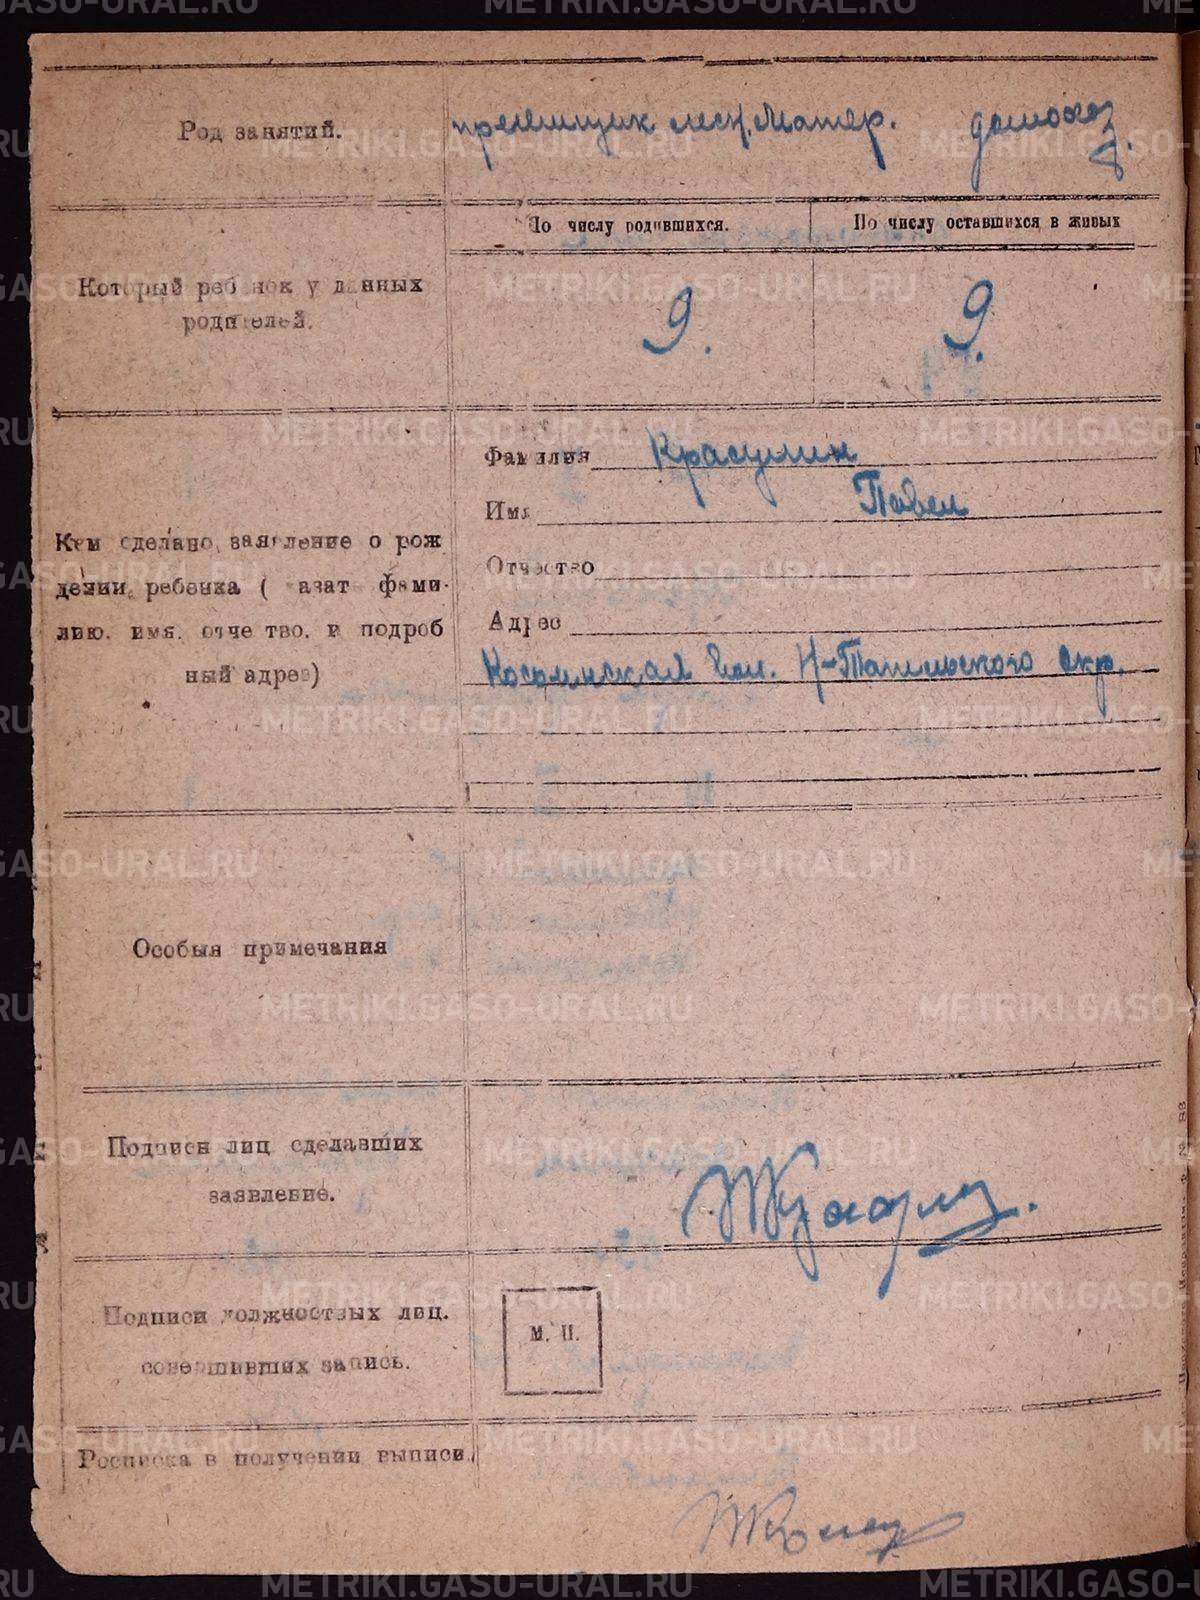 Род занятий. приемщик лесн. Матер. домохоз.
По числу родившихся. По числу оставшихся в живых
Который ребенок у данных
родителей.
9. 9.
Фамилия Красулин
Имя Павел
Кем сделано, заявление о рож
Отчество
дении, ребенка ( азат фами-
Адрес
лию. имя. отче тво. и подроб
ный адрес)
Н-Тагильского Окр.
Особыя примечания
Подписи лиц сделавших
заявление.
Подписи должностных лиц.
М. П.
совершивших запись.
Росписка в получении выписи
METRIKI.GASO-URAL.RU